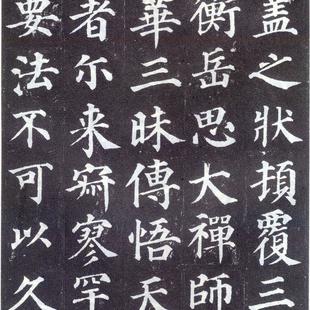 盖之狀頂覆三
衡岳思大禪師
華三昧傳悟天
者尔来寂寥罕
要法不可以久